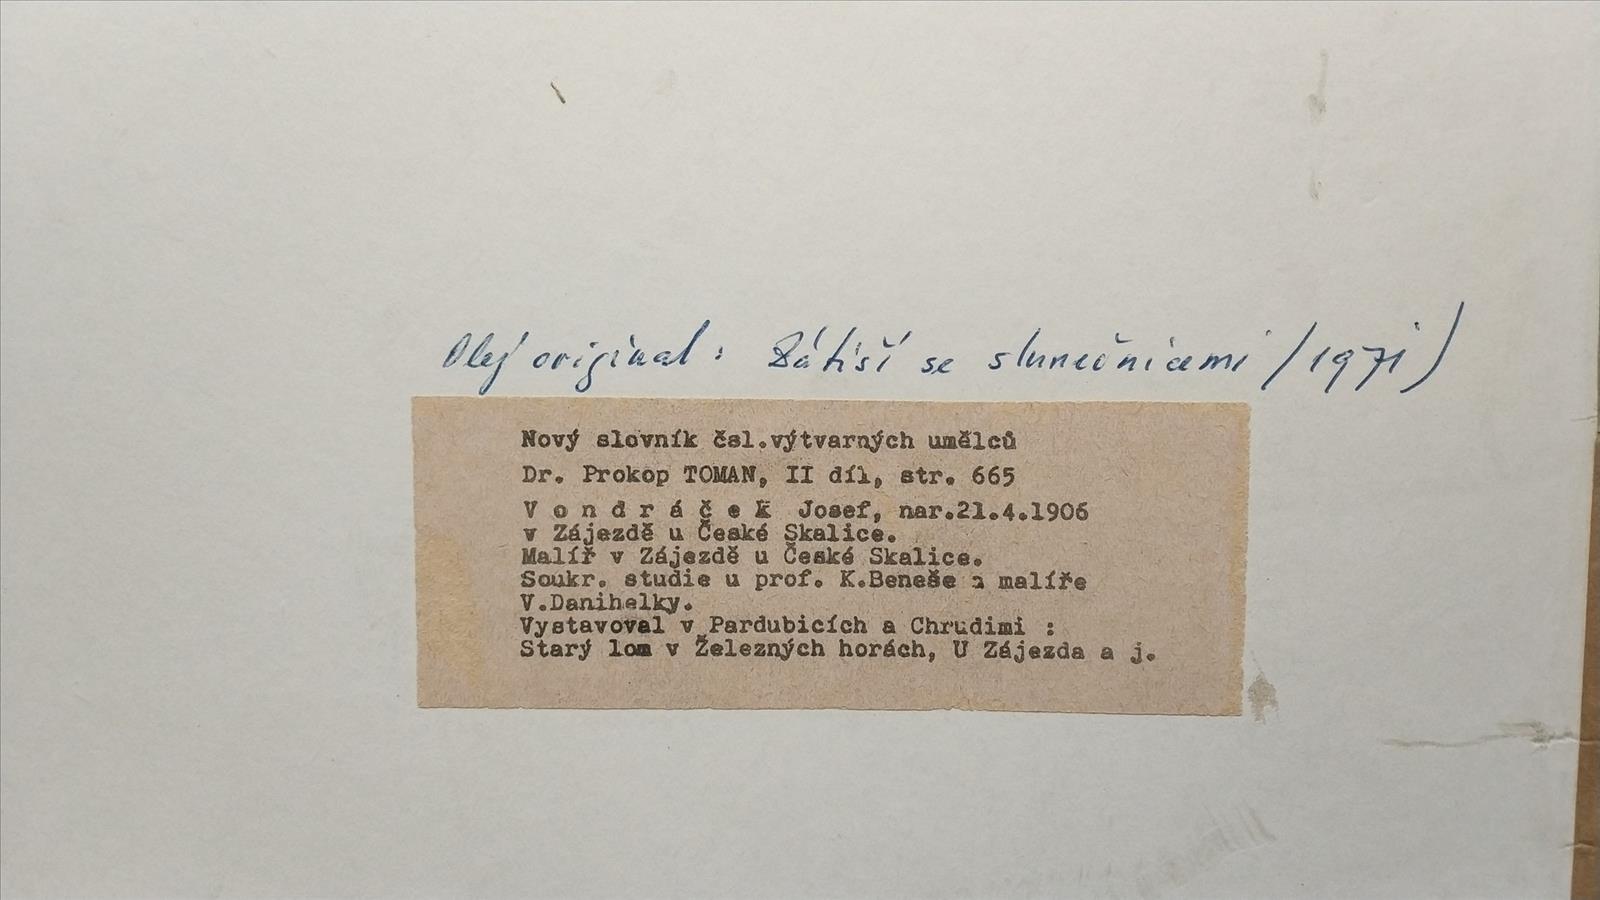 Olej originál: Zátiší se slunečnicemi /1971)
Nový slovník čsl.výtvarných umělců
Dr. Prokop TOMAN, II díl, str. 665
V o n d r á č e k Josef, nar.21.4.1906
v Zájezdě u České Skalice.
Malíř v Zájezdě u České Skalice.
Soukr. studie u prof. K.Beneše a malíře
V.Danihelky.
Vystavoval v Pardubicích a Chrudimi :
Starý lom v Železných horách, U Zájezda a j.